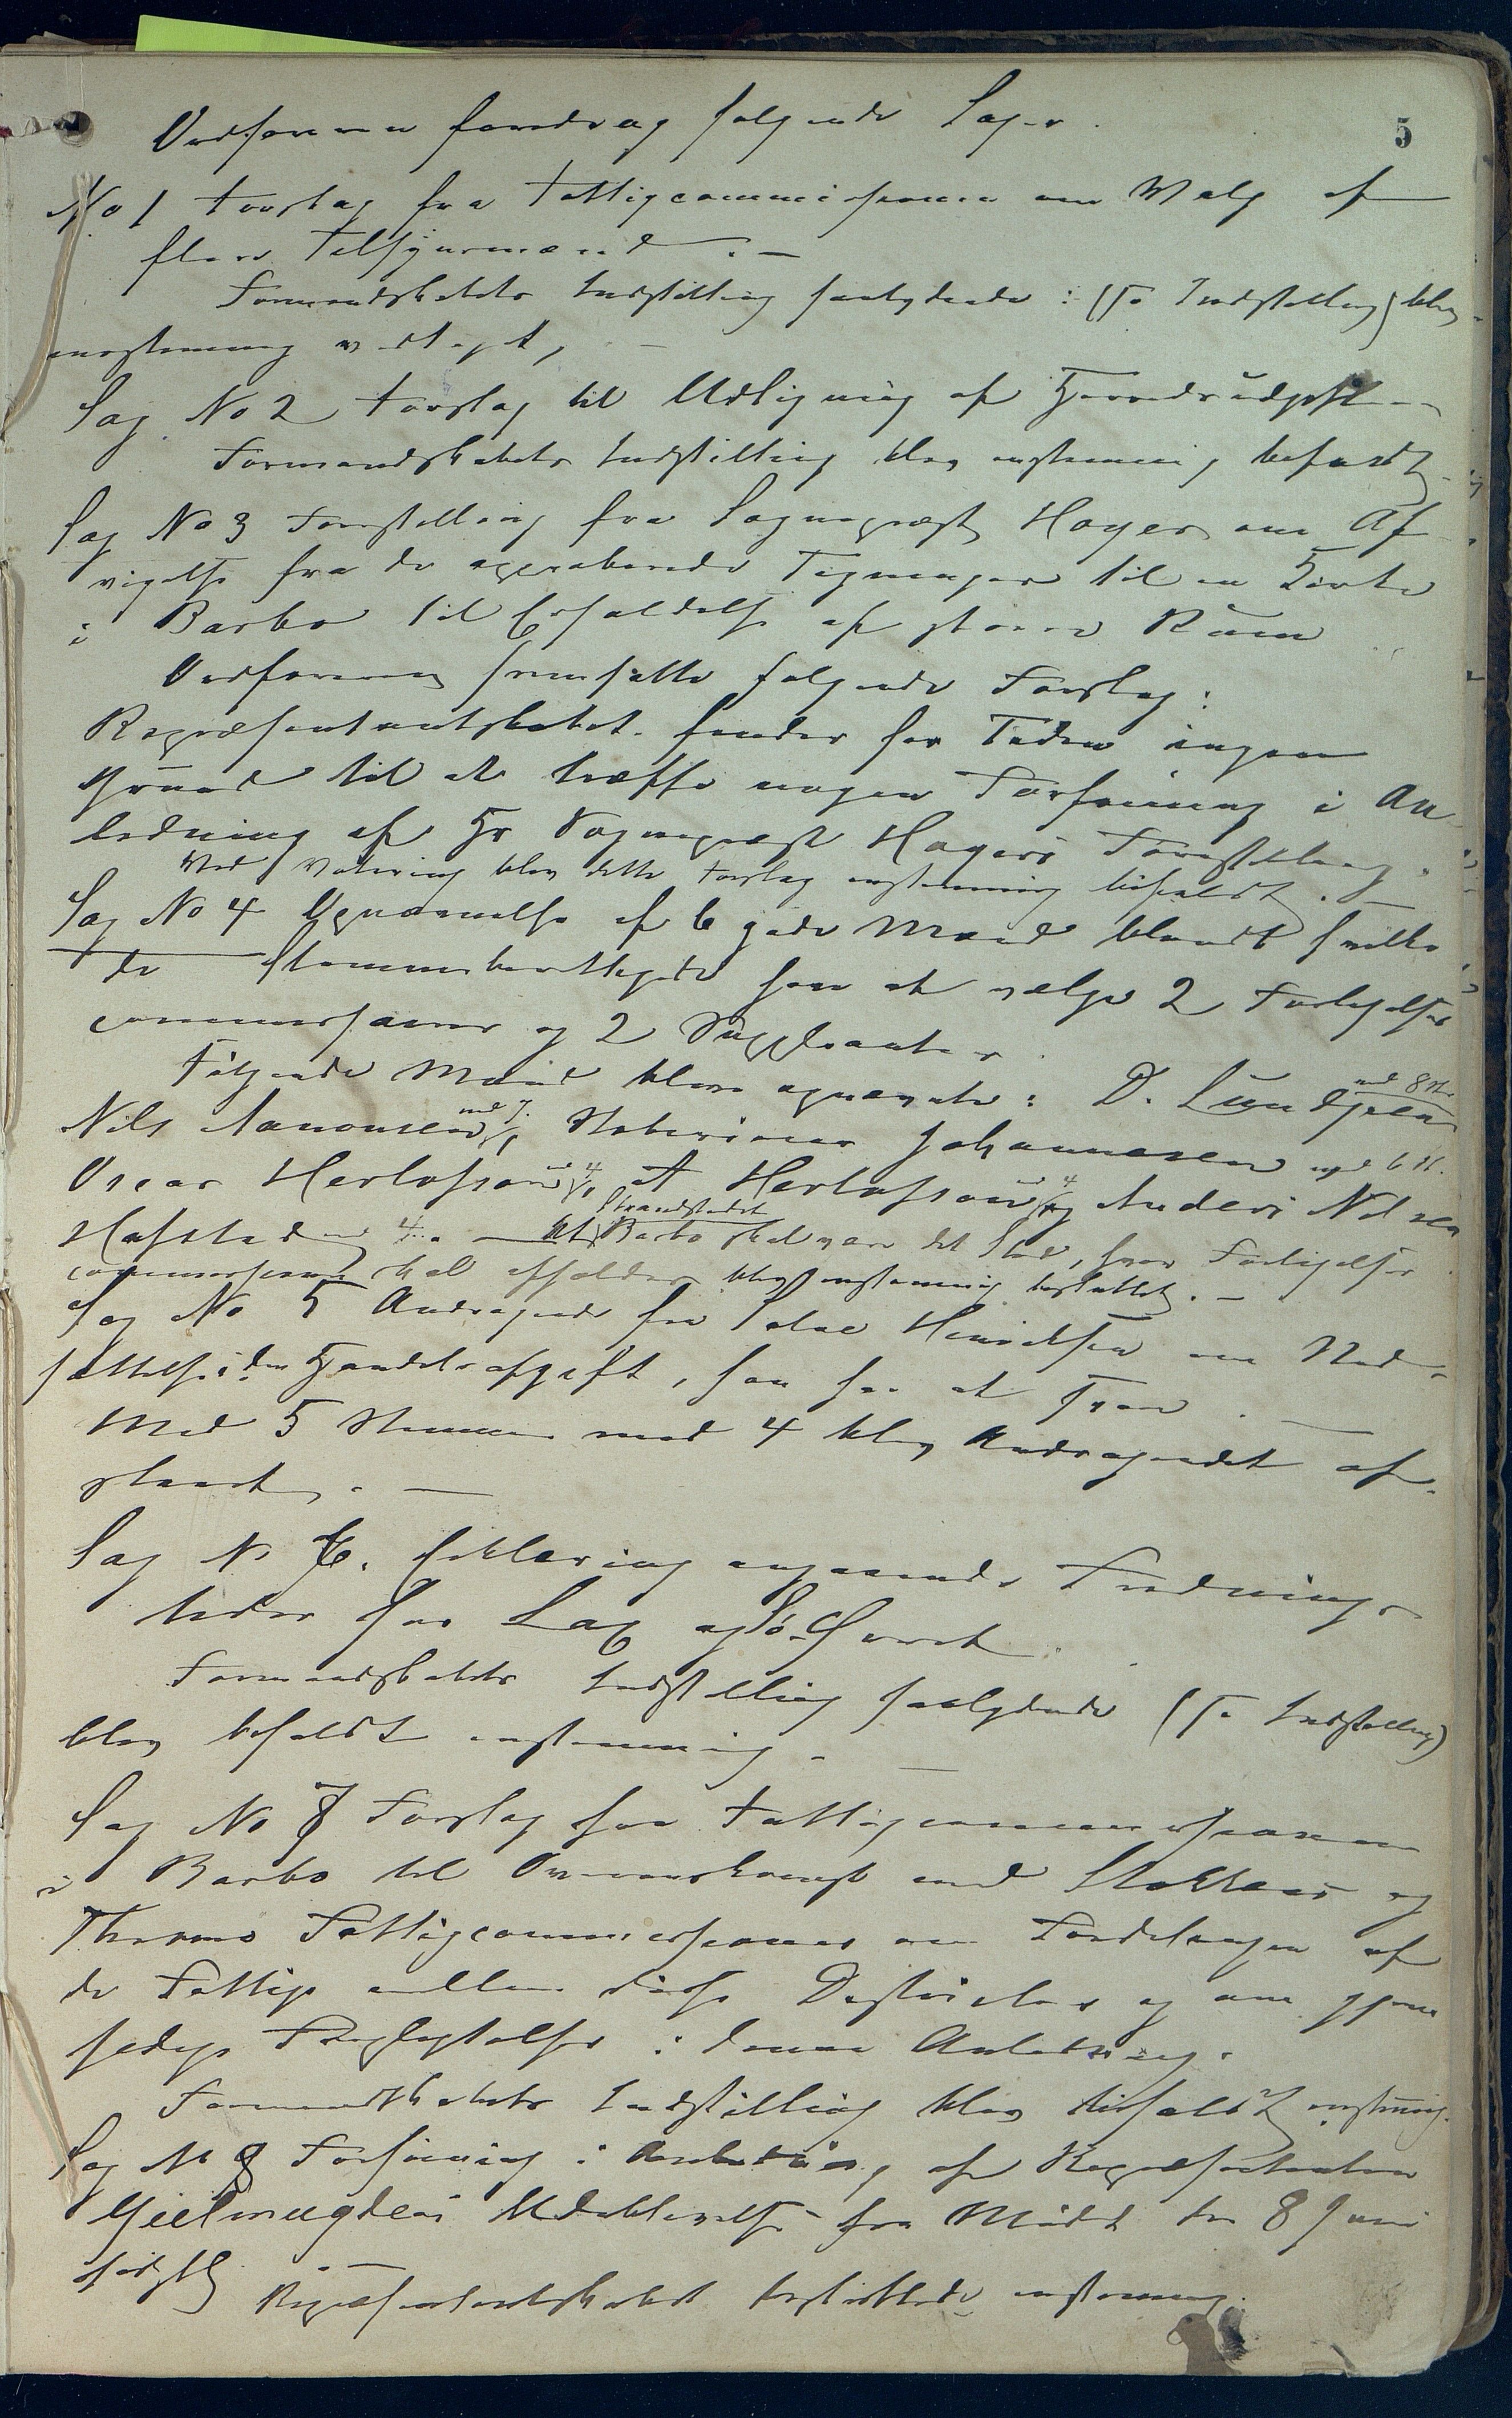 5
Ordføreren foredrog følgende Sager.
No 1 Forslag fra Fattigcommissionen om Valg af
flere Tilsynsmænd. —
Formandskabets Indstilling saalydende: (Ta Indstilling) blev
enstemmig vedtaget, —
Sag No 2 Forslag til Udligning af Herredsudgifterne
Formandskabets Indstilling blev enstemmig bifaldt
Sag No 3 Forestilling fra Sogneprest Hoyer om Af-
vigelse fra de approberede Tegninger til en Kirke
i Barbo til Erholdelse af større Rum
Ordføreren fremsatte følgende Forslag:
Repræsentantskabet finder for Tiden ingen
Grund til at træffe nogen Forføining i An-
ledning af Hr Sogneprest Hoyers Forestilling.
Ved Votering blev dette Forslag enstemmig bifaldt. —
Sag No 4 Opnævnelse af 6 gode Mænd blandt hvilke
de Stemmeberettigede har at vælge 2 Forligelses
commissairer og 2 Suppleanter.
Følgende Mænd bleve opnævnte: D. Lundgren med 8 St.
Nils Aanonsen med 7., Stoberimer Johannesen med 6 St.
Oscar Herlofson med 4, A Herlofson med 4 og Anders Nilsen
Hafstad med 4. — At Strandstedet Barbo skal være det Sted, hvor Forligelses
commissionen skal afholdes blev enstemmig besluttet. —
Sag No 5 Andragende fra Salve Henriksen om Ned-
sættelse i den Handelsafgift, han har at svare. —
Med 5 Stemmer mod 4 blev Andragendet af-
slaaet. —
Sag No 6. Erklæring angaaende Frednings-
tider for Lax og Sö-Ørret.
Formandskabets Indstilling saalydende (Ta Indstilling)
blev bifaldt enstemmig. —
Sag No 7 Forslag fra Fattigcommissionen
i Barbo til Overenskomst med Stokkens og
Thromø Fattigcommissioner om Fordelingen af
de Fattige mellem disse Districter og om gjen
sidige Forpligtelser i denne Anledning.
Formandskabets Indstilling blev bifaldt enstemmig.
Sag No 8 Forføining i Anledning af Repræsentanten
Gjelmugdens Udeblivelse fra Mödet den 8 Juni
sidstl. —
Repræsentantskabet besluttede enstemmig